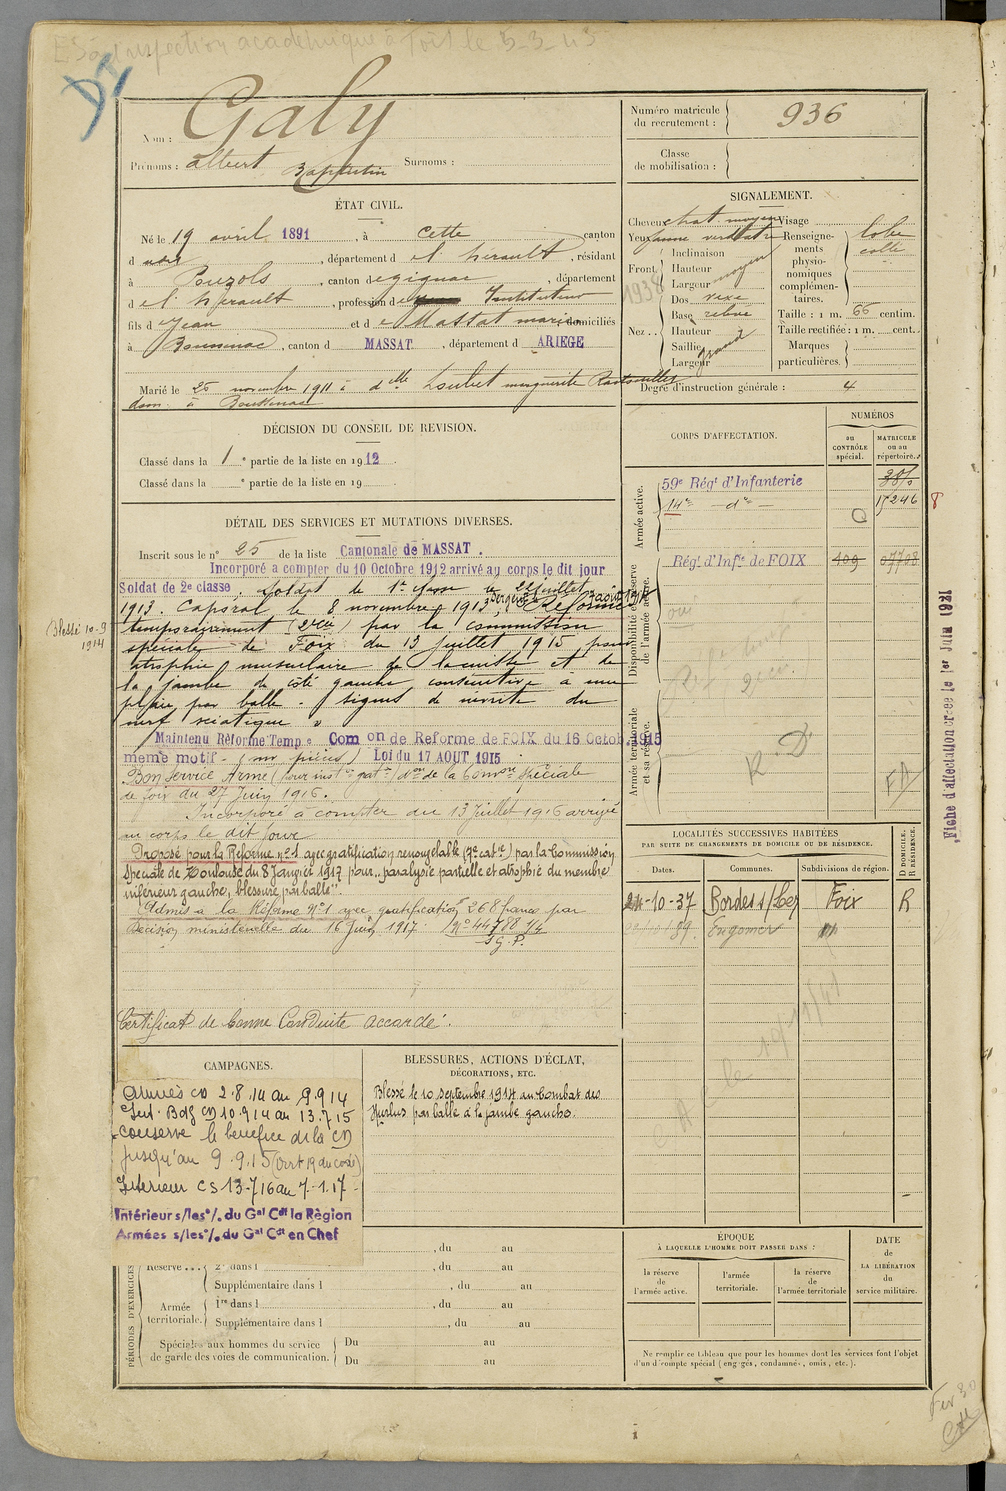 inspection académique à
DI
Nom : Galy
Prénoms : albert Baptistin Surnoms :
Numéro matricule du recrutement : 936
Classe de mobilisation :
ÉTAT CIVIL.
Né le 19 avril 1891, à Cette canton
d , département de l'hérault, résidant
à Pouzols, canton de gignac, département
de l'hérault, profession d Instituteur
fils de Jean et de Massat marie, domiciliés
à Boussenac, canton d MASSAT, département d ARIEGE
Marié le 25 novembre 1911 à dlle Loubet marguerite
dom. à Boussenac
SIGNALEMENT.
Cheveux chat. moyen Visage
Yeux jaune verdâtre
Front Inclinaison
Hauteur moyen
Largeur
Nez.. Dos vexe
Base relevé
Hauteur
Saillie grand
Largeur
1938
Renseignements physionomiques complémentaires. lobe collé
Taille : 1 m. 66 centim.
Taille rectifiée : 1 m. cent.
Marques particulières.
Degré d'instruction générale : 4
DÉCISION DU CONSEIL DE REVISION.
Classé dans la 1 e partie de la liste en 1912.
Classé dans la e partie de la liste en 19 .
DÉTAIL DES SERVICES ET MUTATIONS DIVERSES.
Inscrit sous le n° 25 de la liste Cantonale de MASSAT.
Incorporé a compter du 10 Octobre 1912 arrivé au corps le dit jour
Soldat de 2e classe, soldat de 1re classe le 22 juillet
1913. Caporal le 8 novembre 1913, Sergent 7 août 1915 Réformé
temporairement (2e cie) par la commission
spéciale de Foix du 13 juillet 1915 pour
atrophie musculaire de la cuisse et de
la jambe du coté gauche consécutive à une
plaie par balle. Signes de névrite du
nerf sciatique
Blessé 10-9 1914
Maintenu Réforme Temp e Com on de Reforme de FOIX du 16 Octob. 1915
meme motif - (sur pièces) Loi du 17 AOUT 1915
Bon Service Armé (pour inst on grat on) don de la Comon Spéciale
de Foix du 27 Juin 1916.
Incorporé à compter du 13 Juillet 1916 arrivé
au corps le dit jour
Proposé pour la Réforme n° 1 avec gratification renouvelable (7e catie) par la Commission
Spéciale de Toulouse du 8 Janvier 1917 pour "paralysie partielle et atrophie du membre
inférieur gauche, blessure par balle".
Admis à la Réforme N°1 avec gratification 268 francs par
Décision ministérielle du 16 Juin 1917. N° 44788 94
S.G.P.
Certificat de bonne Conduite accordé.
CORPS D'AFFECTATION.
NUMÉROS
au CONTRÔLE spécial.
MATRICULE ou au répertoire.
Armée active.
59e Régt d'Infanterie
14e - do - 0 15246 8
Disponibilité et réserve de l'armée active.
Régt d'Infie de FOIX 409 07708
Armée territoriale et sa réserve.
R.D.
Fiche d'affectation créée le 1er Juin 1921
LOCALITÉS SUCCESSIVES HABITÉES
PAR SUITE DE CHANGEMENTS DE DOMICILE OU DE RÉSIDENCE.
Dates. Communes. Subdivisions de région. D DOMICILE. R RÉSIDENCE.
24-10-37 Bordes s/Lez Foix R
39 Engomer
CAMPAGNES.
Armées CD 2.8.14 au 9.9.14
Int. Bdg CD 10.9.14 au 13.7.15
conserve le bénéfice de la CD
jusqu'au 9.9.15 (art 19 du code)
Intérieur CS 13-7-16 au 7-1-17
Intérieur s/les o/. du Gal Cdt la Règion
Armées s/les o/. du Gal Cdt en Chef
BLESSURES, ACTIONS D'ÉCLAT,
DÉCORATIONS, ETC.
Blessé le 10 septembre 1914 au Combat des
Hurlus par balle à la jambe gauche.
PÉRIODES D'EXERCICES
, du au
Réserve... 2e dans l , du au
Supplémentaire dans l , du au
Armée territoriale. 1re dans l , du au
Supplémentaire dans l , du au
Spéciales aux hommes du service de garde des voies de communication. Du au
Du au
ÉPOQUE
À LAQUELLE L'HOMME DOIT PASSER DANS :
la réserve de l'armée active.
l'armée territoriale.
la réserve de l'armée territoriale
DATE de LA LIBÉRATION du service militaire.
Ne remplir ce tableau que pour les hommes dont les services font l'objet
d'un décompte spécial (engagés, condamnés, omis, etc.).